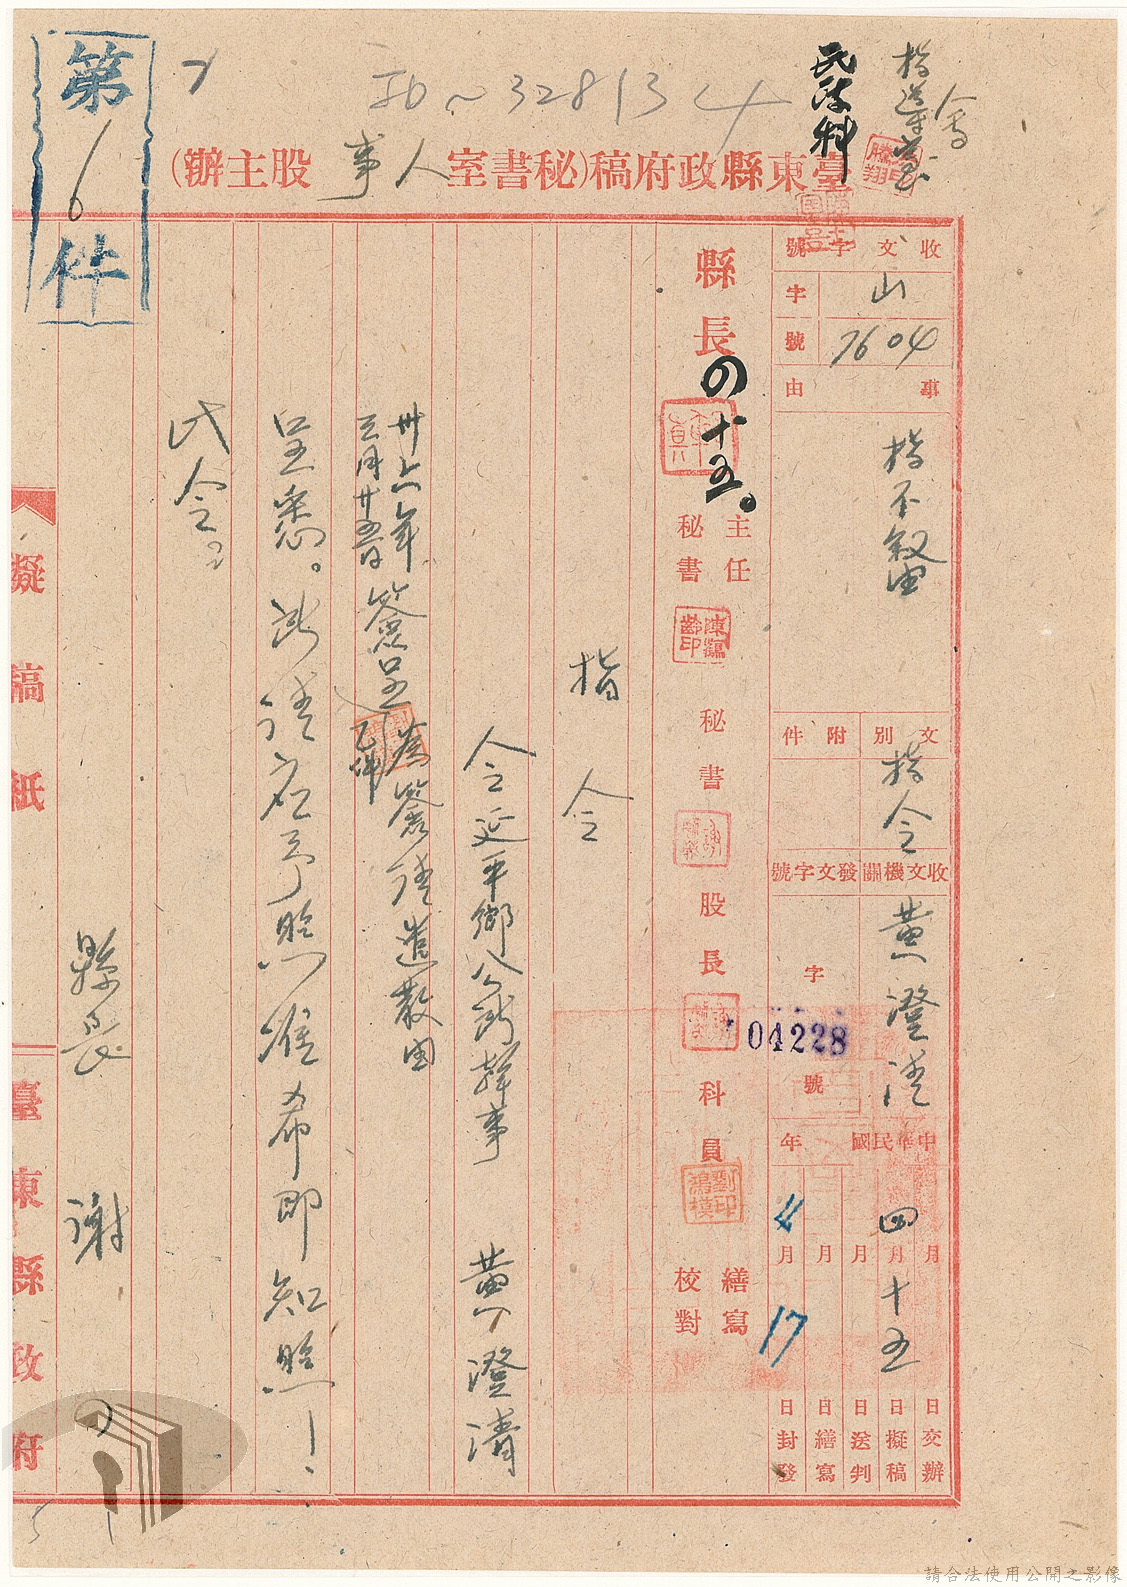 第16件
36~328134
民政科
會
指導室
臺東縣政府稿(秘書室人事股主辦)
收文字號
山字
7604號
事由
指不敘由
文別
指令
附件
收文機關
黃澄清
發文字號
字
04228
號
中華民國
年
月
四月
月
月
4月
十五
17
日交辦
日擬稿
日送判
日繕寫
日封發
縣長
四十五。
主任秘書
秘書
股長
科員
劉印鴻模
繕寫
校對
指令
令延平鄉公所幹事 黃澄清
卅六年三月廿五日簽呈乙件為簽請遣散由
呈悉。所請應予照准希即知照!
此令。
縣長 謝
擬稿紙
臺東縣政府
請合法使用公開之影像